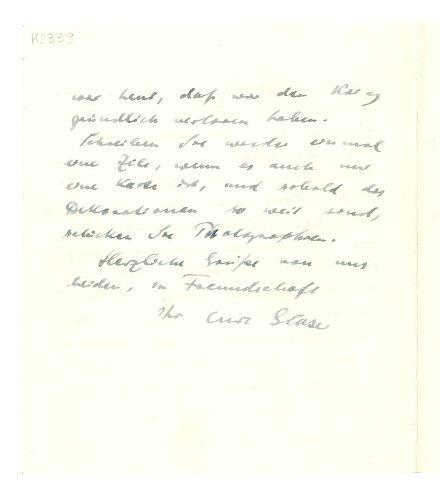 K2339
war heut, daß wir den Krieg
gründlich verloren haben.
Schreiben Sie wieder einmal
eine Zeile, wenn es auch nur
eine Karte ist, und sobald die
Dekorationen so weit sind,
schicken Sie Photographien.
Herzliche Grüße von uns
beiden, in Freundschaft
Ihr Curt Glaser